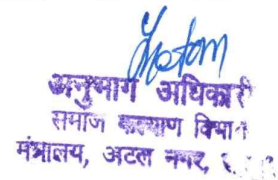 अनुभाग अधिकारी
समाज कल्याण विभाग
मंत्रालय, अटल नगर,